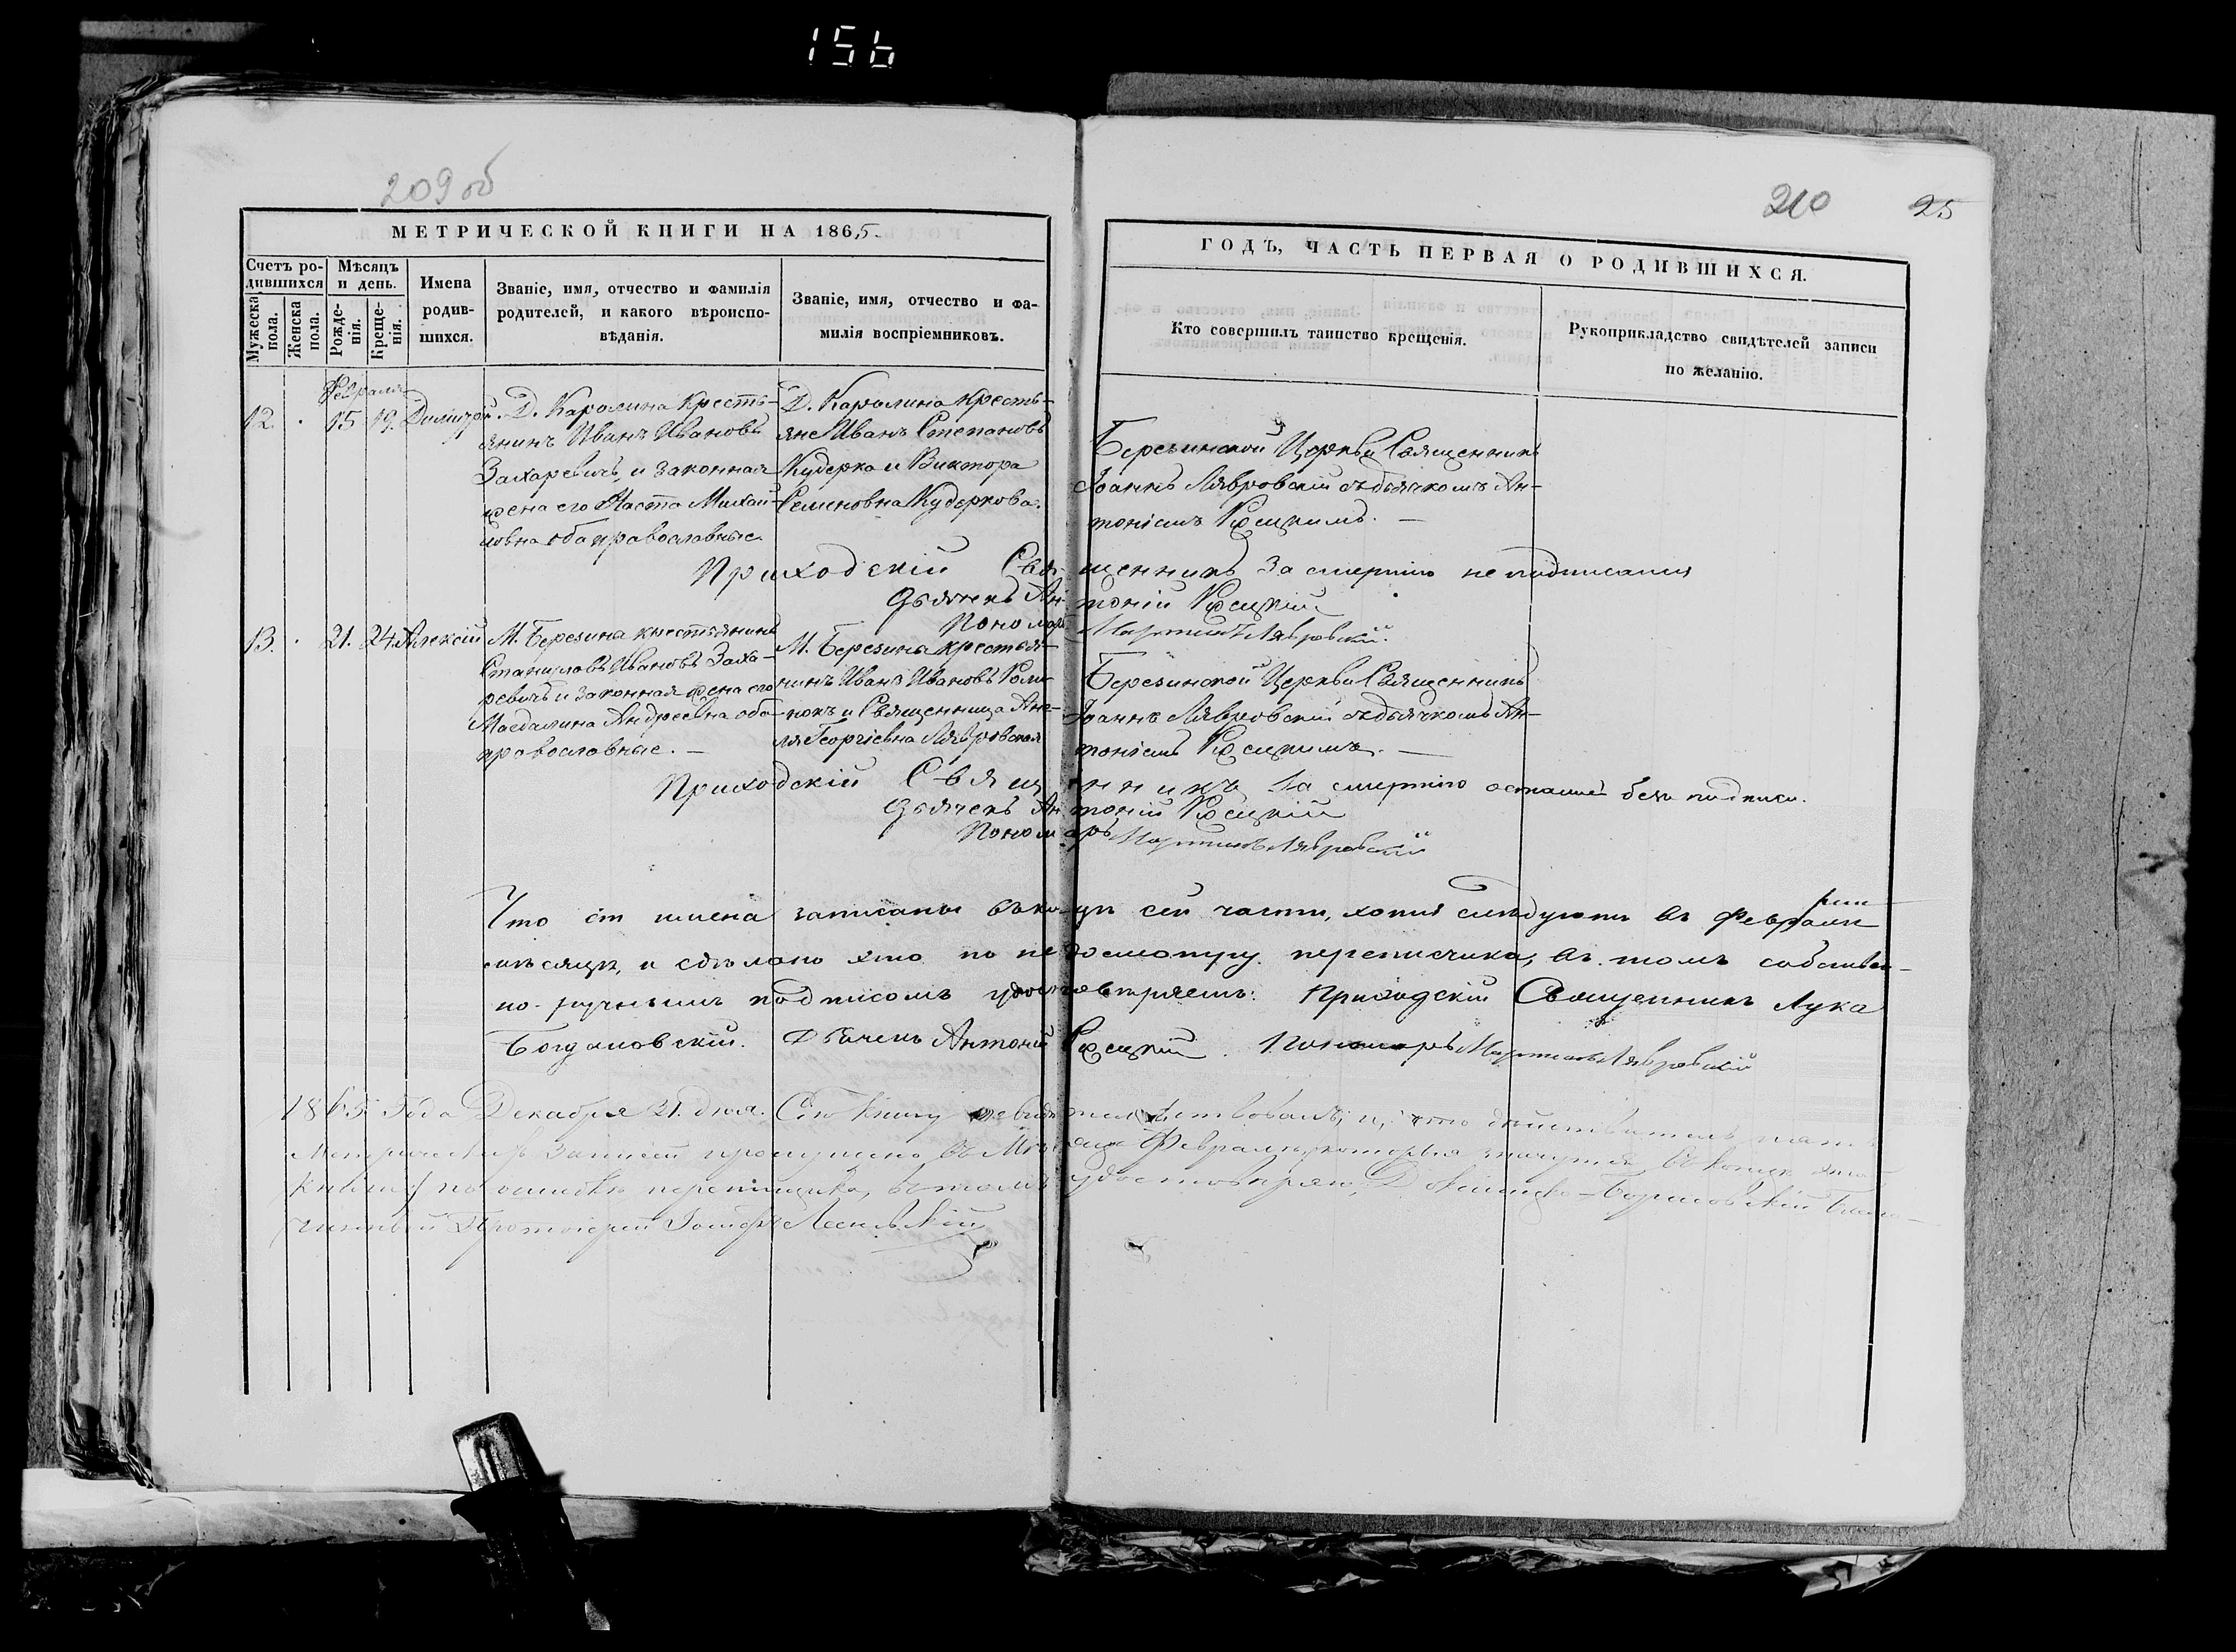 156
209 об
210 25
МЕТРИЧЕСКОЙ КНИГИ НА 1865.
ГОДЪ, ЧАСТЬ ПЕРВАЯ О РОДИВШИХСЯ.
Счетъ ро-
дившихся
Мужеска
пола.
Женска
пола.
Мѣсяцъ
и день.
Рожде-
нія.
Креще-
нія.
Имена
родив-
шихся.
Званіе, имя, отчество и фамилія
родителей, и какого вѣроиспо-
вѣданія.
Званіе, имя, отчество и фа-
милія воспріемниковъ.
Кто совершилъ таинство крещенія.
Рукоприкладство свидѣтелей записи
по желанію.
Февраля
12. 15 19. Димитрій.
Д. Каролина кресть-
янинъ Иванъ Ивановъ
Захаревичъ и законная
жена его Наста Михай-
ловна оба православные.
Д. Каролина кресть-
яне Иванъ Степановъ
Кудерко и Виктора
Семеновна Кудеркова.
Березинской Церкви Священникъ
Іоаннъ Лявровскій съ дьячкомъ Ан-
тоніемъ
Приходскій Священникъ за смертію не подписался
Дьячекъ Антоній
Пономарь Мартинъ Лявровскій.
13. 21. 24. Алексій
М. Березина крестьянинъ
Станиловъ Ивановъ Заха-
ревичъ и законная жена его
Магдалина Андреевна оба
православные. —
М. Березина крестья-
нинъ Иванъ Ивановъ
и Священница Ане-
ля Георгіевна Лявровская
Березинской Церкви Священникъ
Іоаннъ Лявровскій съ дьячкомъ Ан-
тоніемъ
Приходскій Священникъ за смертію осталось безъ подписи.
Дьячекъ Антоній
Пономарь Мартинъ Лявровскій
Что имена записаны въ концѣ сей части, хотя слѣдуютъ въ Февралѣ
мѣсяцѣ, и сдѣлано это по недосмотру переписчика, въ томъ собствен-
но-ручнымъ подписомъ удостовѣряемъ: Приходскій Священникъ Лука
Богдановскій. Дьячекъ Антоній Пономарь Мартинъ Лявровскій
1865 Года Декабря 21. дня. Сію книгу свидѣтельствовалъ, и, что дѣйствительно
Метрическихъ записей пропущено въ Мѣсяцѣ Февралѣ, которыя значутся въ концѣ
книги по ошибкѣ переписщика, въ томъ удостовѣряю, Докшицко-Борисовскій Благо-
чинный Протоіерей Іосифъ